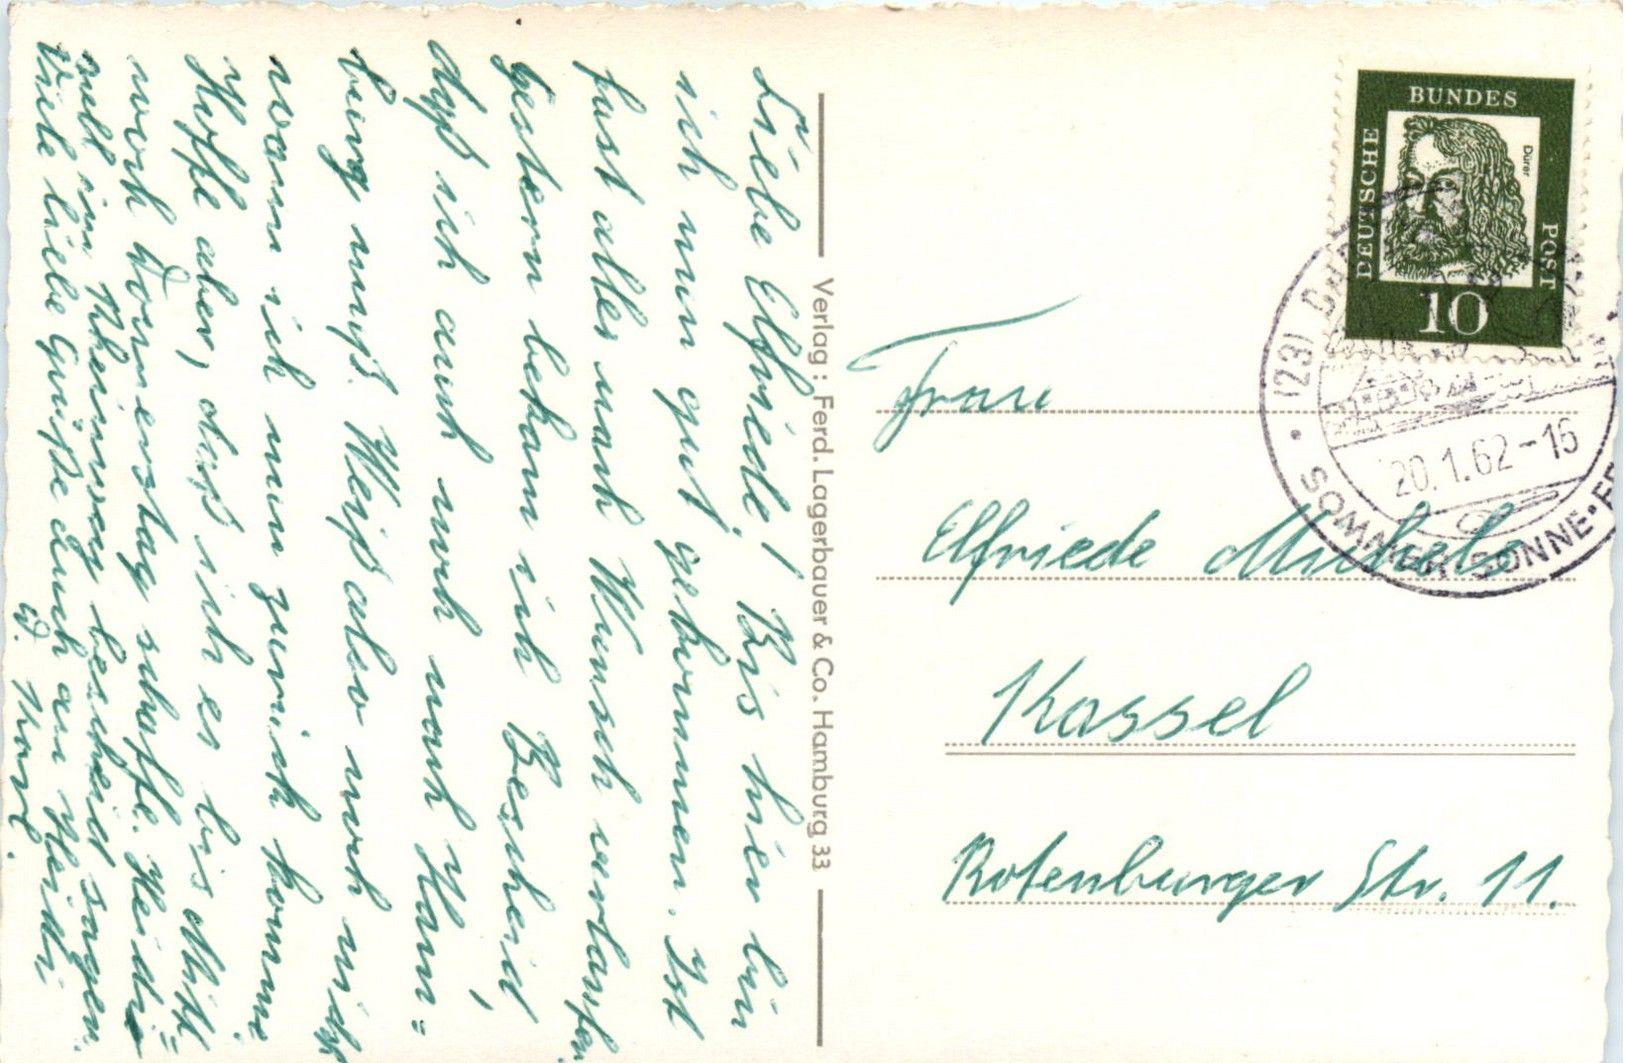 Liebe Elfriede! Bis hier bin
ich nun gut gekommen. Ist
fast alles nach Wunsch verlaufen.
Gestern bekam ich Bescheid,
daß ich auch noch nach Ham=
burg muß. Weiß also noch nicht
wann ich nun zurück komme
Hoffe aber, daß ich es bis Mitt=
woch Donnerstag schaffe. Heidi
will im Rheinweg bescheid sagen.
Viele liebe Grüße auch an Heidi
D. Karl.
Verlag: Ferd. Lagerbauer & Co. Hamburg 33
DEUTSCHE
BUNDES
POST
Dürer
10
(23)
20.1.62-16
SOMMER·SONNE·
Frau
Elfriede Michels
Kassel
Rotenburger Str. 11.